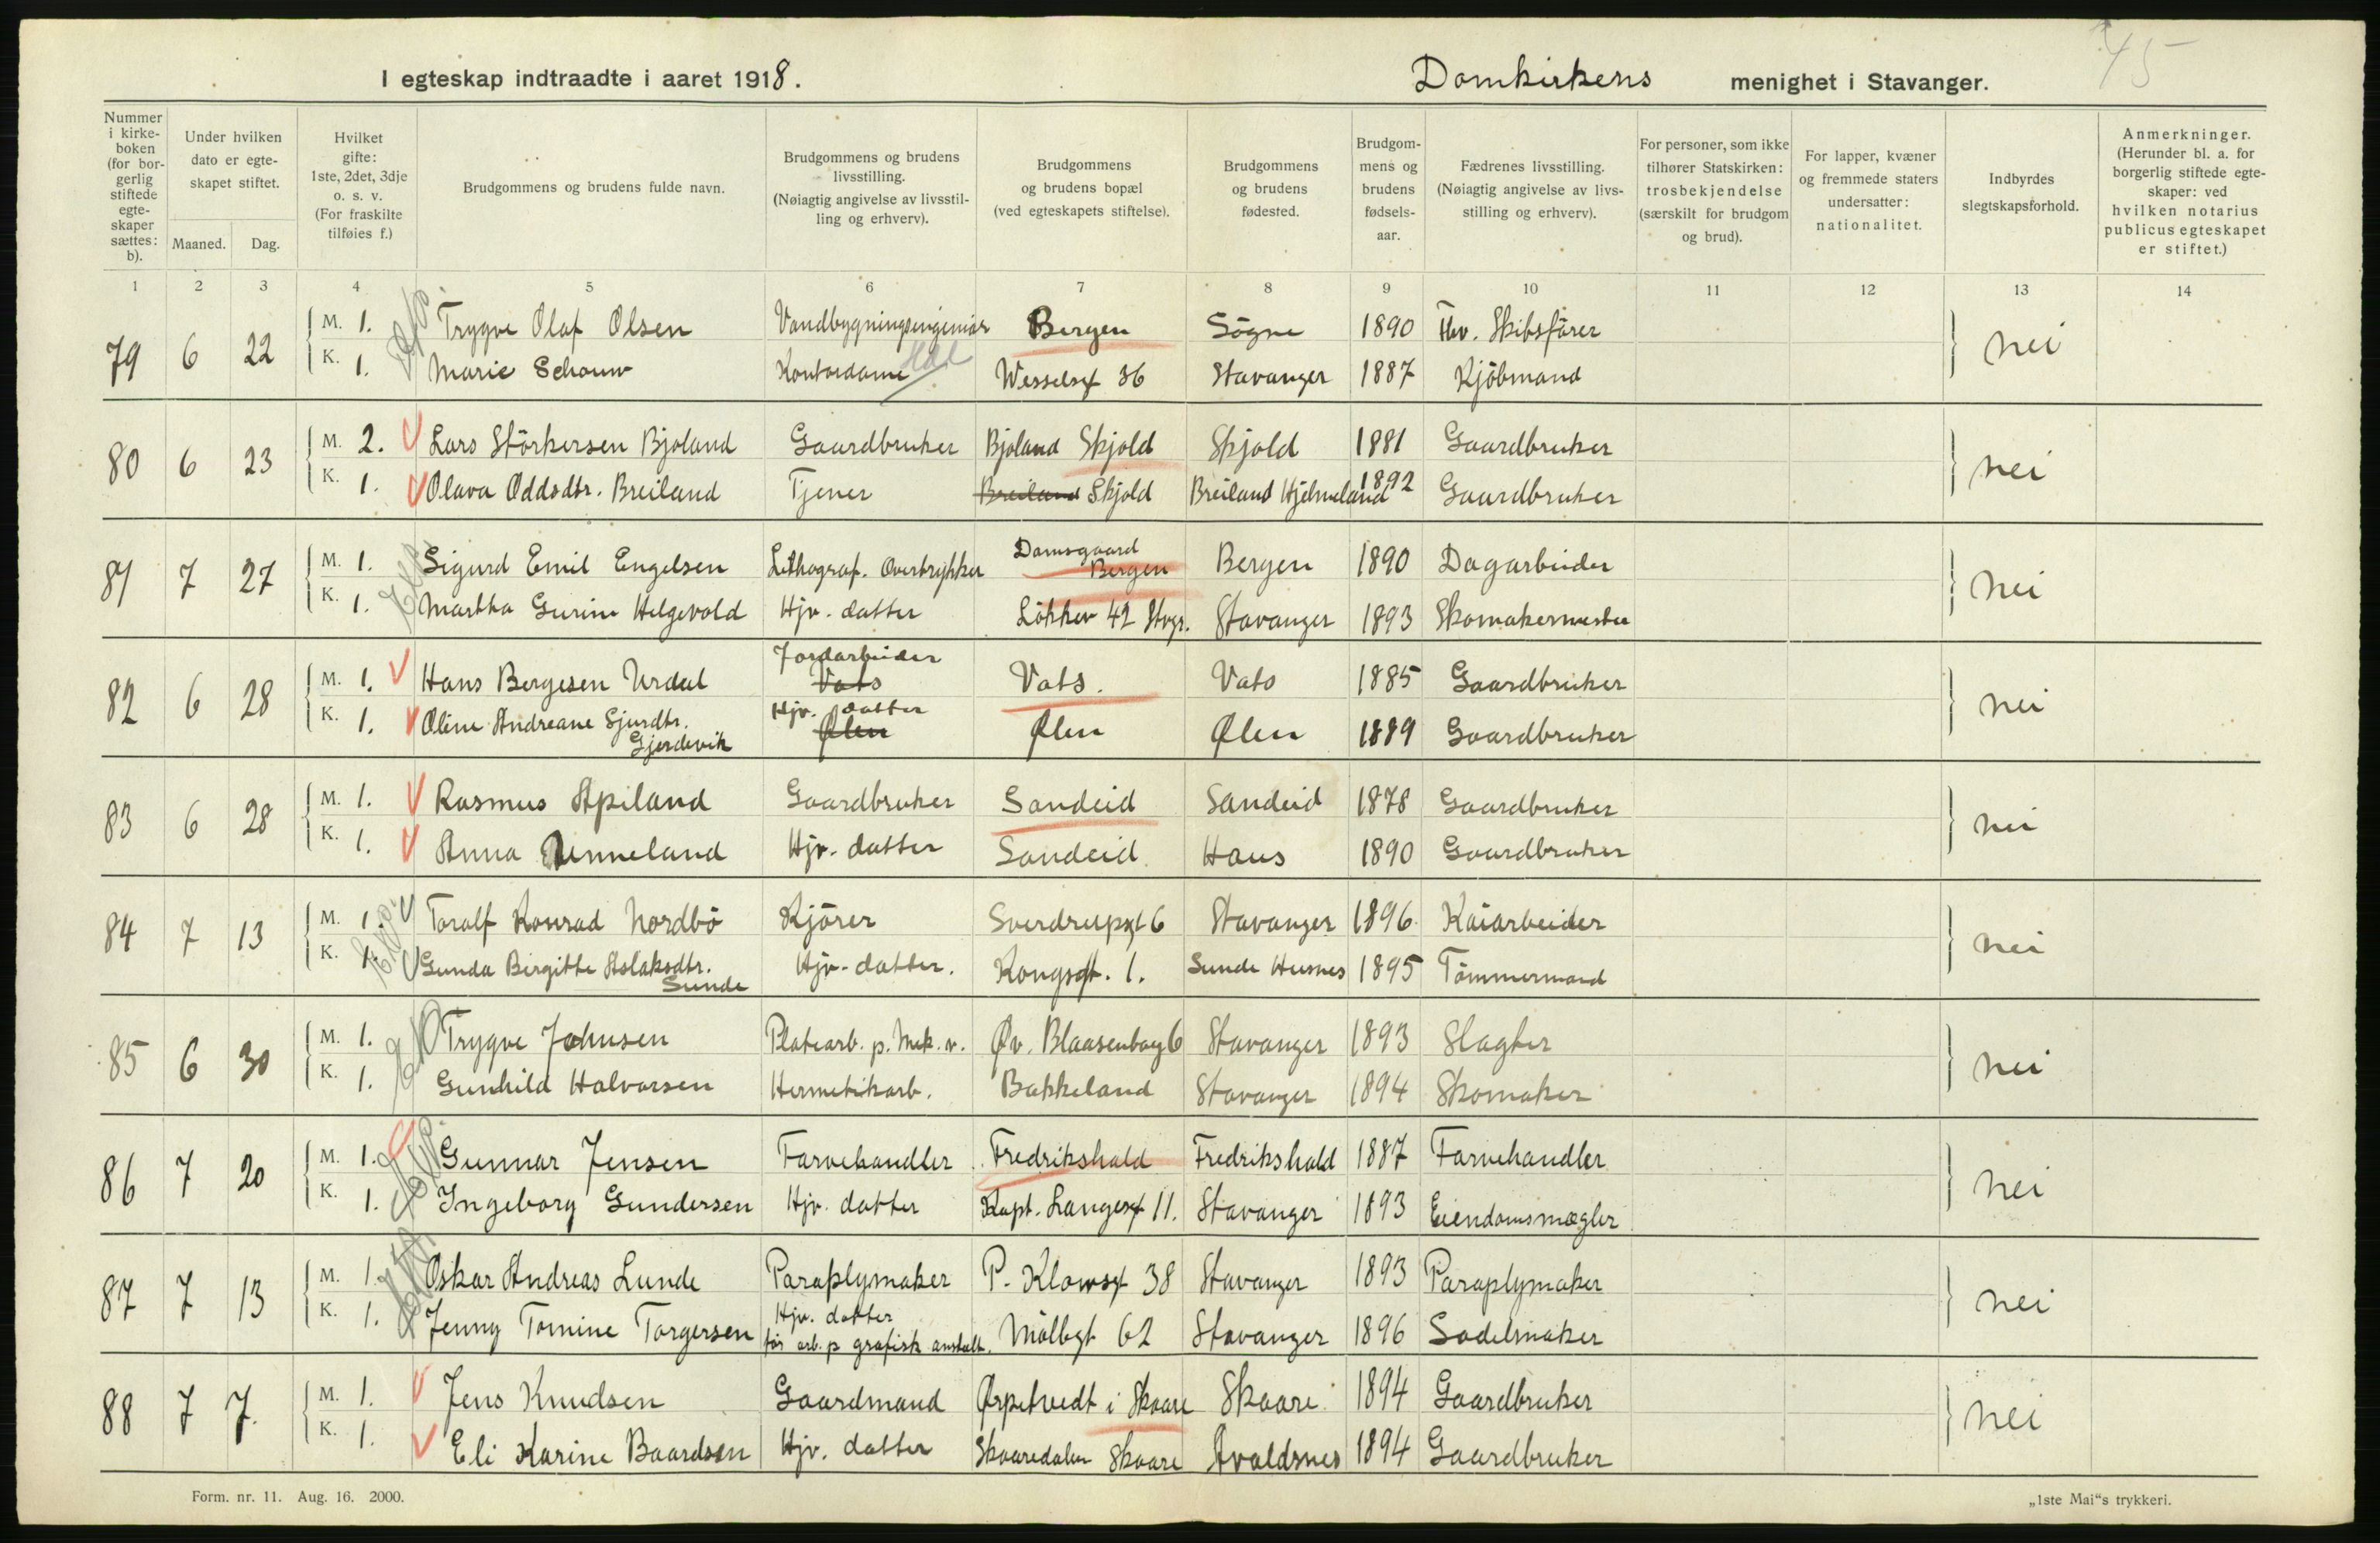 45
I egteskap indtraadte i aaret 1918. Domkirkens menighet i Stavanger.
Nummer i kirkeboken (for borgerlig stiftede egteskaper sættes: b). Under hvilken dato er egteskapet stiftet. Maaned. Dag. Hvilket gifte: 1ste, 2det, 3dje o. s. v. (For fraskilte tilføies f.) Brudgommens og brudens fulde navn. Brudgommens og brudens livsstilling. (Nøiagtig angivelse av livsstilling og erhverv). Brudgommens og brudens bopæl (ved egteskapets stiftelse). Brudgommens og brudens fødested. Brudgommens og brudens fødselsaar. Fædrenes livsstilling. (Nøiagtig angivelse av livsstilling og erhverv). For personer, som ikke tilhører Statskirken: trosbekjendelse (særskilt for brudgom og brud). For lapper, kvæner og fremmede staters undersatter: nationalitet. Indbyrdes slegtskapsforhold. Anmerkninger. (Herunder bl. a. for borgerlig stiftede egteskaper: ved hvilken notarius publicus egteskapet er stiftet.)
1 2 3 4 5 6 7 8 9 10 11 12 13 14
79 6 22 M. 1. Trygve Olaf Olsen Vandbygningsingeniør Bergen Søgne 1890 Fhv. Skibsfører nei
K. 1. Marie Schouw Kontordame Wesselsgt 36 Stavanger 1887 Kjöbmand
80 6 23 M. 2. Lars Störkersen Bjoland Gaardbruker Bjoland Skjold Skjold 1881 Gaardbruker nei
K. 1. Olava Oddsdtr. Breiland Tjener Breiland Skjold Breiland Hjelmeland 1892 Gaardbruker
81 7 27 M. 1. Sigurd Emil Engelsen Lithograf. Overtrykker Damsgaard Bergen Bergen 1890 Dagarbeider nei
K. 1. Martha Gurine Helgevold Hjv. datter Løkkev 42 Stvgr. Stavanger 1893 Skomakermester
82 6 28 M. 1. Hans Bergesen Urdal Jordarbeider Vats Vats. Vats 1885 Gaardbruker nei
K. 1. Oline Andreane Sjurdtr. Gjerdevik Hjv. datter Ølen Ølen Ølen 1889 Gaardbruker
83 6 28 M. 1. Rasmus Apiland Gaardbruker Sandeid Sandeid 1878 Gaardbruker nei
K. 1. Anna Unneland Hjv. datter Sandeid Haus 1890 Gaardbruker
84 7 13 M. 1. Toralf Konrad Nordbö Kjörer Sverdrupsgt 6 Stavanger 1896 Kaiarbeider nei
K. 1. Gunda Birgitte Aslaksdtr. Sunde Hjv. datter. Kongsgt. 1. Sunde Husnes 1895 Tömmermand
85 6 30 M. 1. Trygve Johnsen Platearb. p. Mek. v. Øv. Blaasenborg 6 Stavanger 1893 Slagter nei
K. 1. Gunhild Halvorsen Hermetikarb. Bakkeland Stavanger 1894 Skomaker
86 7 20 M. 1. Gunnar Jensen Farvehandler Fredrikshald Fredrikshald 1887 Farvehandler nei
K. 1. Ingeborg Gundersen Hjv. datter Kapt. Langesgt 11. Stavanger 1893 Eiendomsmægler
87 7 13 M. 1. Oskar Andreas Lunde Paraplymaker P. Klowsgt 38 Stavanger 1893 Paraplymaker nei
K. 1. Jenny Tomine Torgersen Hjv. datter før arb. p grafisk anstalt. Møllegt 62 Stavanger 1896 Sadelmaker
88 7 7. M. 1. Jens Knudsen Gaardmand Ørpetvedt i Skaare Skaare. 1894 Gaardbruker nei
K. 1. Eli Karine Baardsen Hjv. datter Skaaredalen Skaare Avaldsnes 1894 Gaardbruker
Form. nr. 11. Aug. 16. 2000. „1ste Mai“s trykkeri.